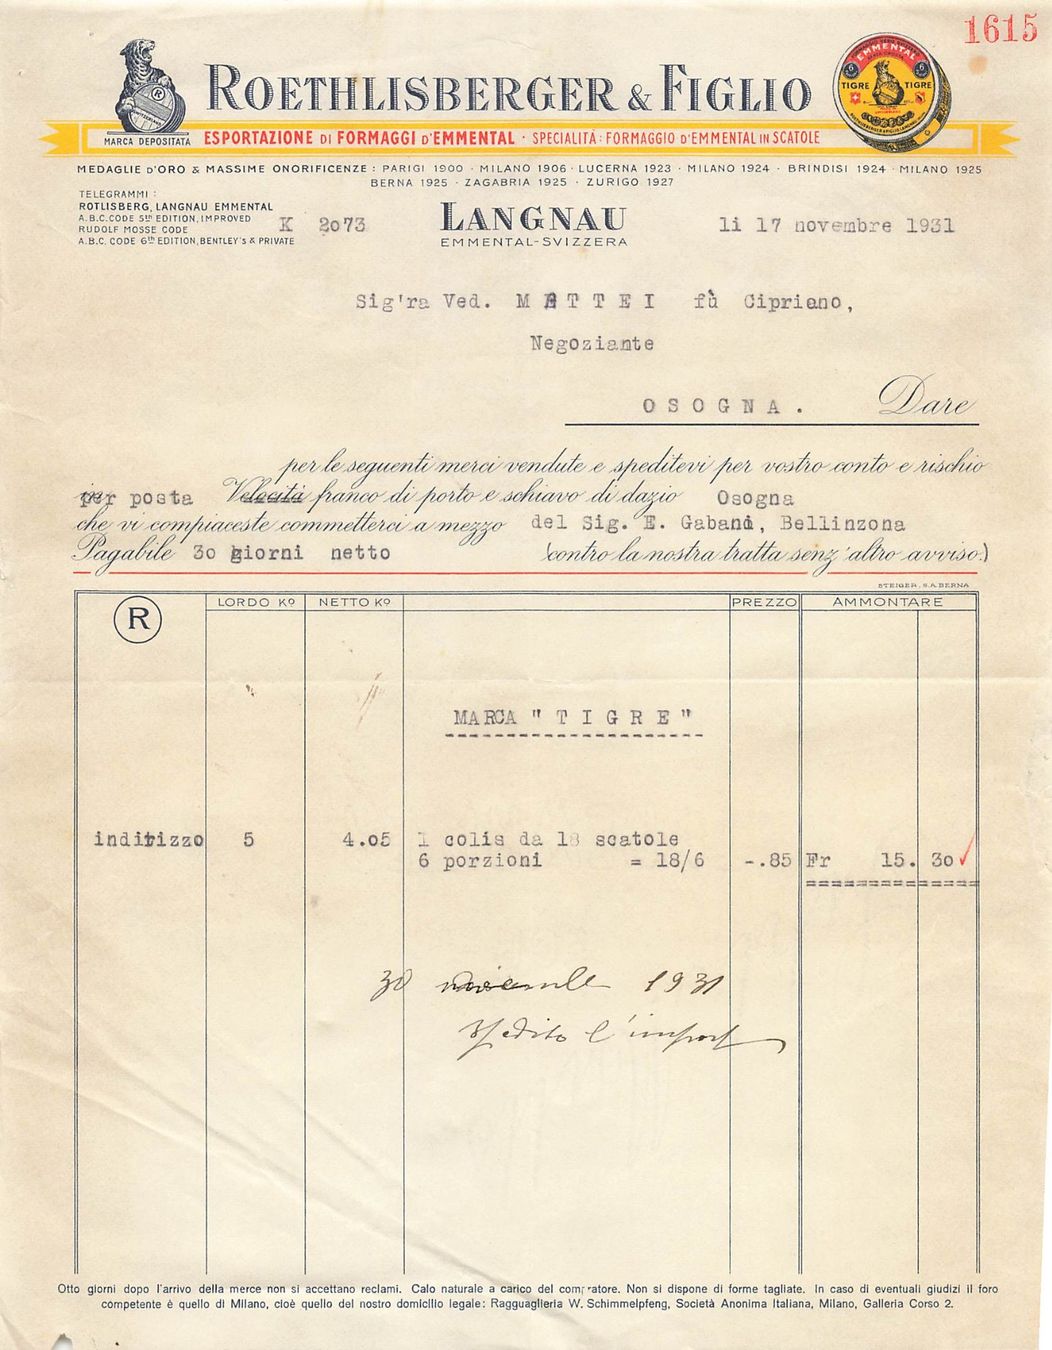 1615
ROETHLISBERGER & FIGLIO
EMMENTAL
TIGRE TIGRE
MARCA DEPOSITATA
ESPORTAZIONE DI FORMAGGI D'EMMENTAL · SPECIALITÀ: FORMAGGIO D'EMMENTAL IN SCATOLE
MEDAGLIE D'ORO & MASSIME ONORIFICENZE : PARIGI 1900 · MILANO 1906 · LUCERNA 1923 · MILANO 1924 · BRINDISI 1924 · MILANO 1925
BERNA 1925 · ZAGABRIA 1925 · ZURIGO 1927
TELEGRAMMI :
ROTLISBERG, LANGNAU EMMENTAL
A.B.C. CODE 5th EDITION, IMPROVED
RUDOLF MOSSE CODE
A.B.C. CODE 6th EDITION, BENTLEY'S & PRIVATE
K 2073
LANGNAU
EMMENTAL-SVIZZERA
li 17 novembre 1931
Sig'ra Ved. METTEI fù Cipriano,
Negoziante
OSOGNA. Dare
per le seguenti merci vendute e speditevi per vostro conto e rischio
per posta Velocità franco di porto e schiavo di dazio Osogna
che vi compiaceste commetterci a mezzo del Sig. E. Gabani, Bellinzona
Pagabile 30 giorni netto (contro la nostra tratta senz'altro avviso.)
STEIGER, S.A. BERNA
R LORDO Ko NETTO Ko PREZZO AMMONTARE
MARCA "TIGRE"
indirizzo 5 4.05 1 colis da 18 scatole
6 porzioni = 18/6 -.85 Fr 15.30
30 1931
spedito l'import
Otto giorni dopo l'arrivo della merce non si accettano reclami. Calo naturale a carico del compratore. Non si dispone di forme tagliate. In caso di eventuali giudizi il foro
competente è quello di Milano, cioè quello del nostro domicilio legale: Ragguaglieria W. Schimmelpfeng, Società Anonima Italiana, Milano, Galleria Corso 2.